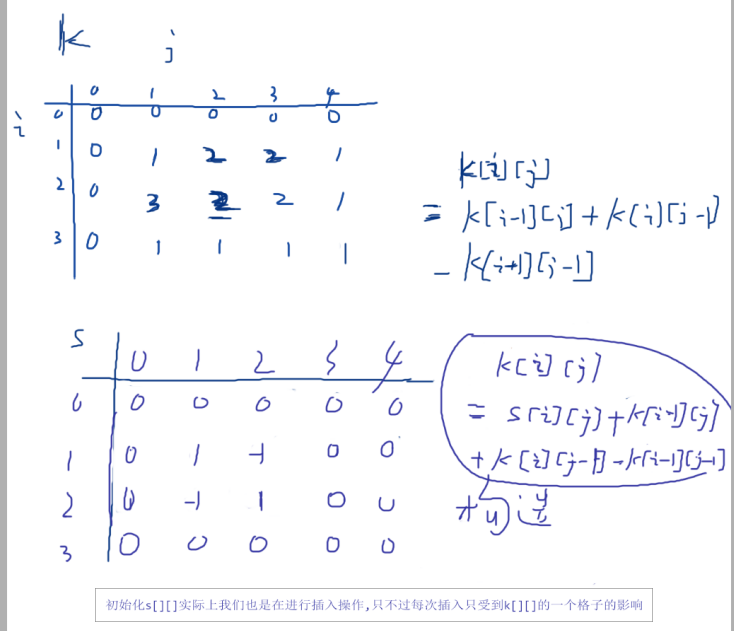 k j
0 1 2 3 4
i 0 0 0 0 0 0
1 0 1 2 2 1
2 0 3 2 2 1
3 0 1 1 1 1
k[i][j]
= k[i-1][j] + k[i][j-1]
- k[i+1][j-1]
s 0 1 2 3 4
0 0 0 0 0 0
1 0 1 -1 0 0
2 0 -1 1 0 0
3 0 0 0 0 0
k[i][j]
= s[i][j] + k[i-1][j]
+ k[i][j-1] - k[i-1][j-1]
初始化s[][]实际上我们也是在进行插入操作,只不过每次插入只受到k[][]的一个格子的影响